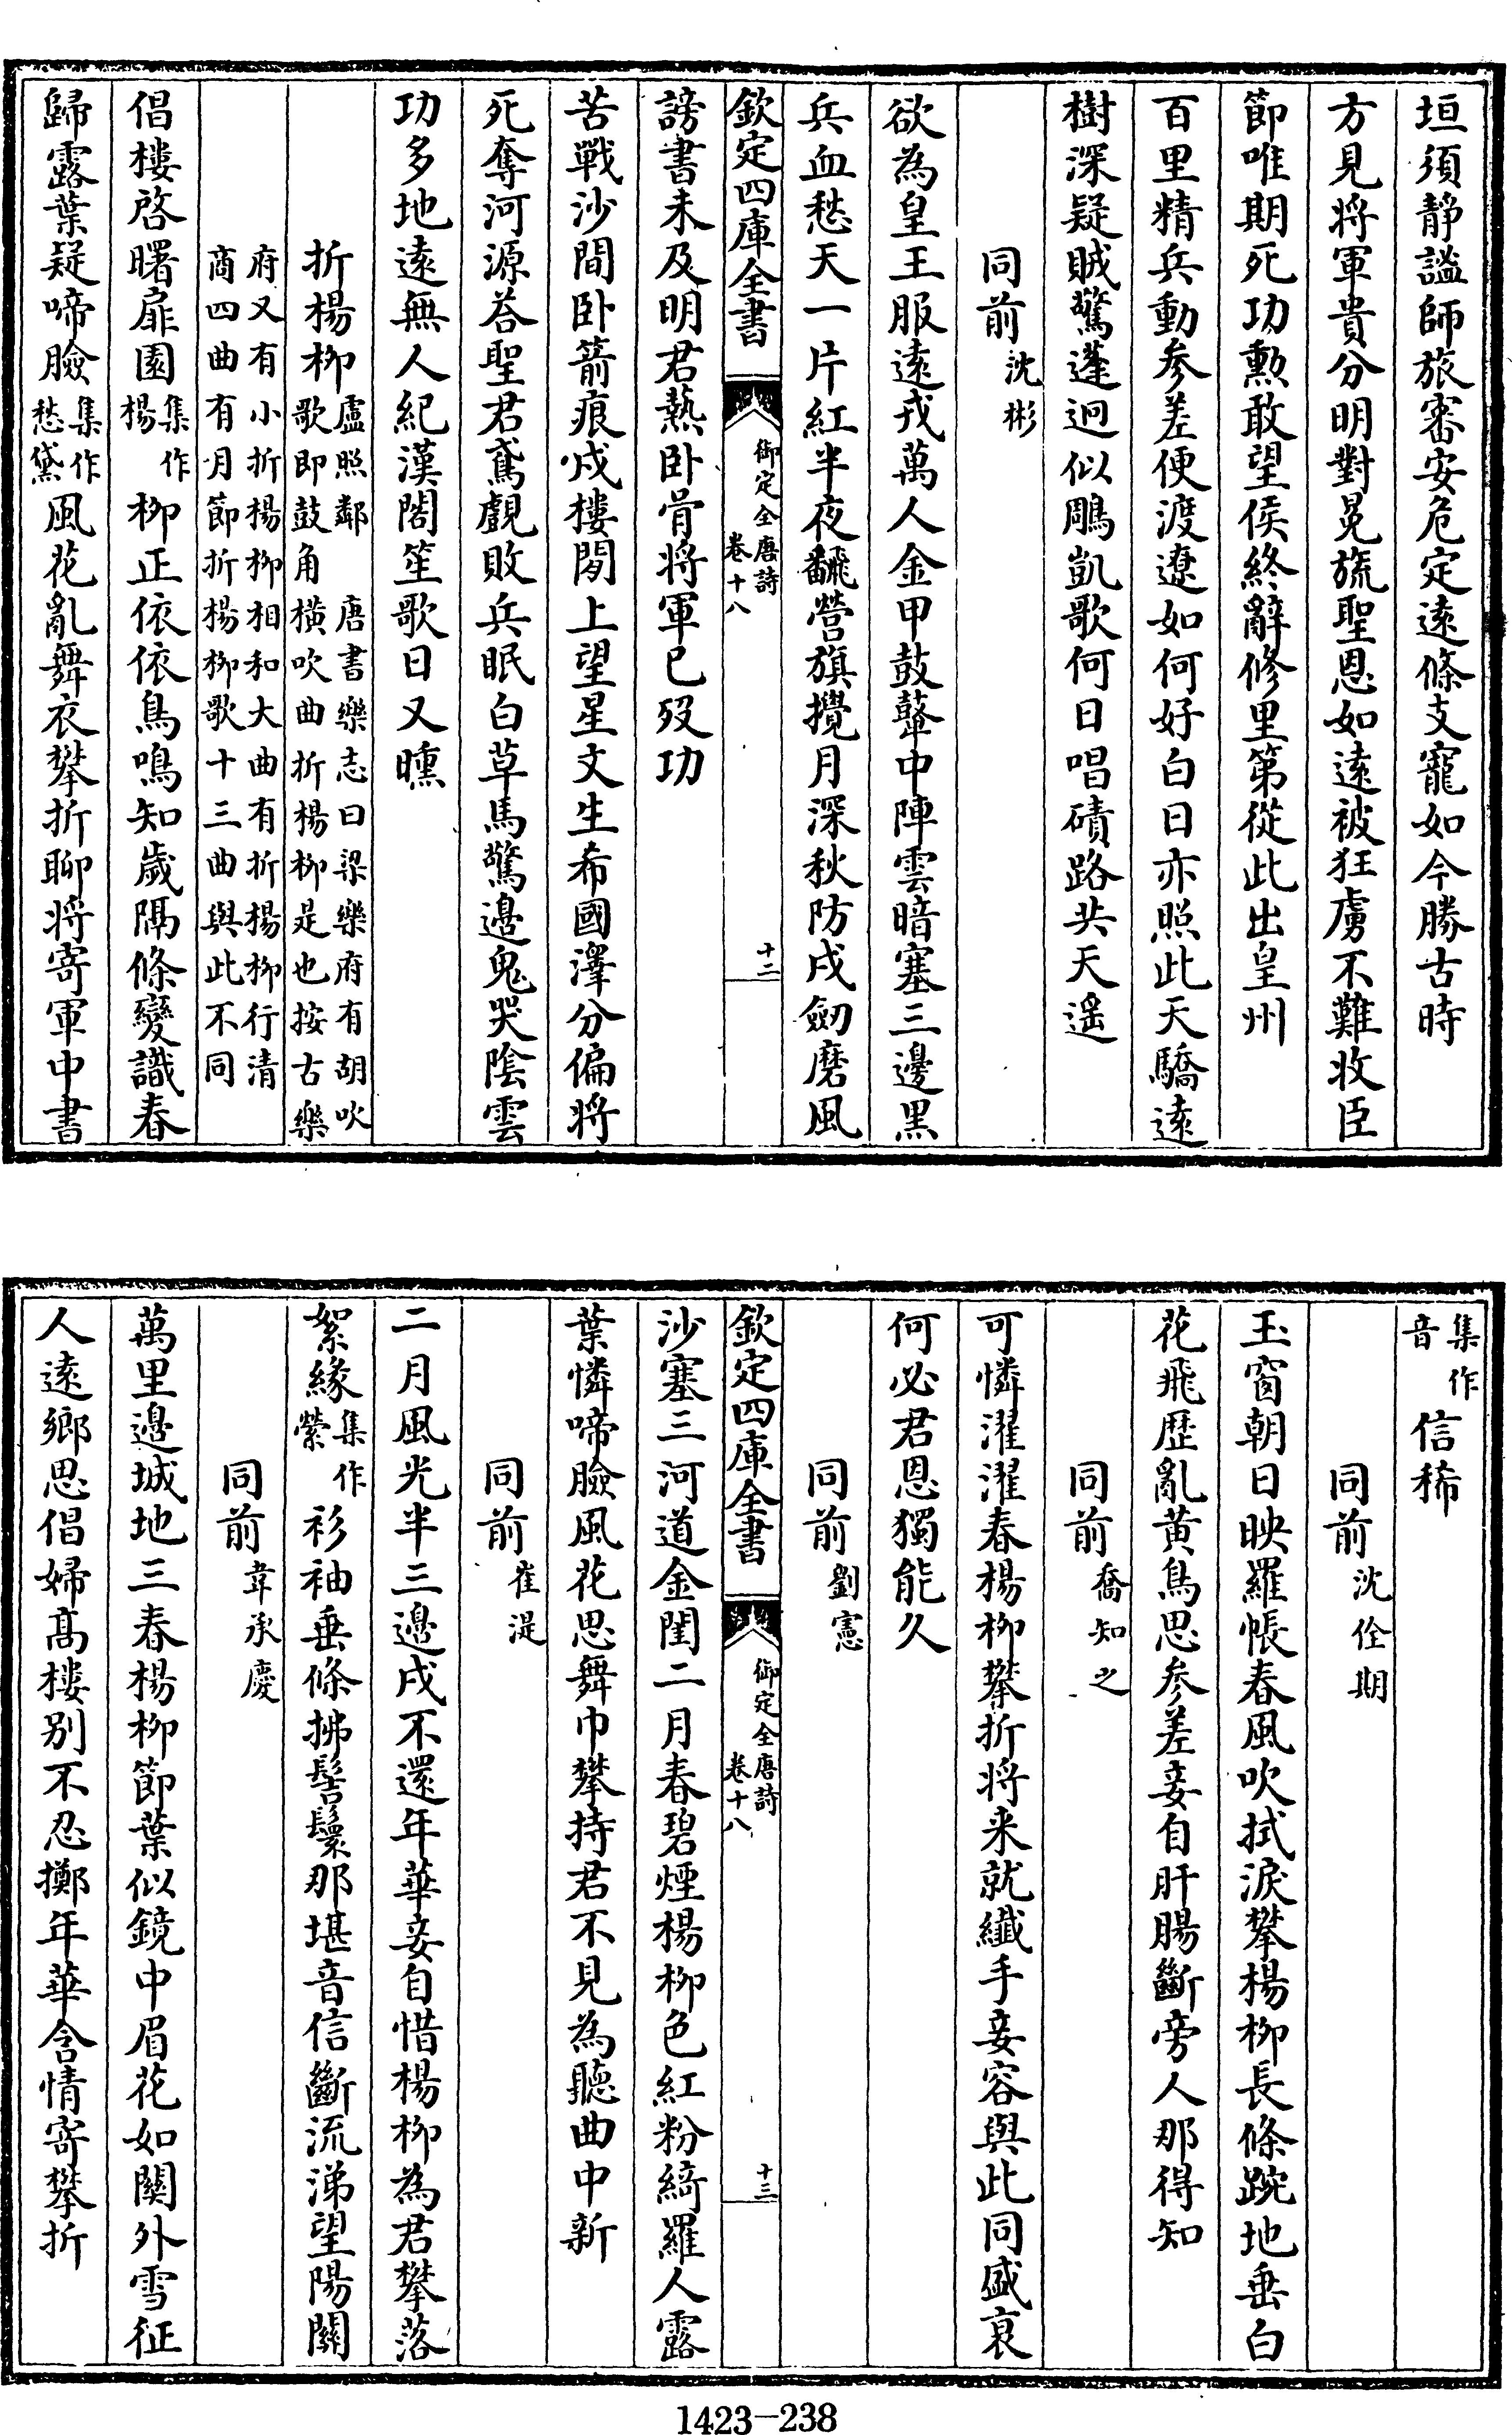 垣須靜謐師旅審安危定遠條支寵如今勝古時
方見將軍貴分明對冕旒聖恩如遠被狂虜不難收臣
節唯期死功勲敢望侯終辭修里第從此出皇州
百里精兵動參差便渡遼如何好白日亦照此天驕遠
樹深疑賊驚蓬迥似鵰凱歌何日唱磧路共天遥
同前 沈彬
欲為皇王服遠戎萬人金甲鼓鼙中陣雲暗塞三邊黒
兵血愁天一片紅半夜翻營旗攪月深秋防戍劒磨風
欽定四庫全書 御定全唐詩 卷十八 十二
謗書未及明君爇卧骨將軍已歿功
苦戰沙間卧箭痕戍樓閑上望星文生希國澤分偏將
死奪河源荅聖君鳶覷敗兵眠白草馬驚邉鬼哭陰雲
功多地遠無人紀漢閣笙歌日又曛
折楊柳 盧照鄰 唐書樂志曰梁樂府有胡吹
歌即鼓角橫吹曲折楊柳是也按古樂
府又有小折楊柳相和大曲有折楊柳行清
商四曲有月節折楊柳歌十三曲與此不同
倡樓啓曙扉園 集作楊 柳正依依鳥鳴知歲隔條變識春
歸露葉疑啼臉 集作愁黛 風花亂舞衣攀折聊將寄軍中書
集作音 信稀
同前 沈佺期
玉窗朝日映羅帳春風吹拭淚攀楊柳長條踠地垂白
花飛歴亂黄鳥思參差妾自肝腸斷旁人那得知
同前 喬知之
可憐濯濯春楊柳攀折將来就纎手妾容與此同盛衰
何必君恩獨能久
同前 劉憲
欽定四庫全書 御定全唐詩 卷十八 十三
沙塞三河道金閨二月春碧煙楊柳色紅粉綺羅人露
葉憐啼臉風花思舞巾攀持君不見為聽曲中新
同前 崔湜
二月風光半三邊戍不還年華妾自惜楊柳為君攀落
絮緣 集作縈 衫袖垂條拂髻鬟那堪音信斷流涕望陽關
同前 韋承慶
萬里邉城地三春楊柳節葉似鏡中眉花如關外雪征
人遠鄉思倡婦髙樓别不忍擲年華含情寄攀折
1423-238